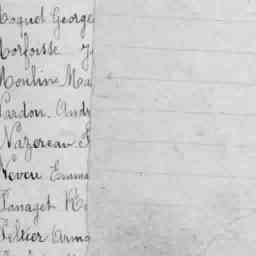 Coquet George
Morfoisse J
Moulins Ma
Pardon. Andr
Nazereau F
Neveu Emma
Panaget Re
Peltier Arma